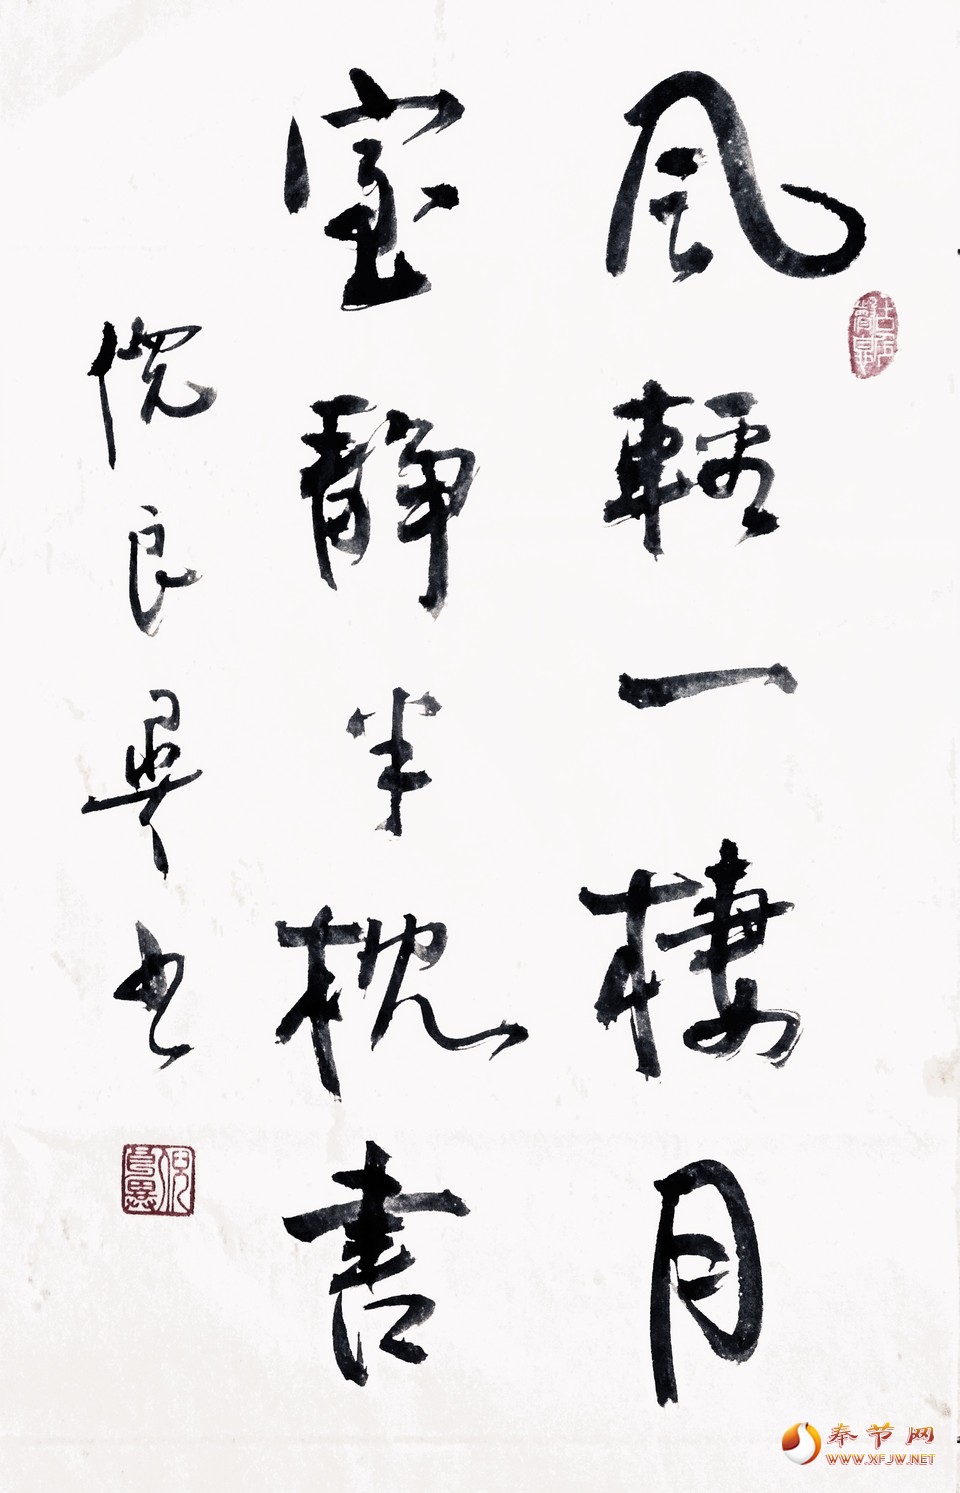 風輕一棲月
室靜半枕書
倪良異书
奉节网
WWW.XFJW.NET